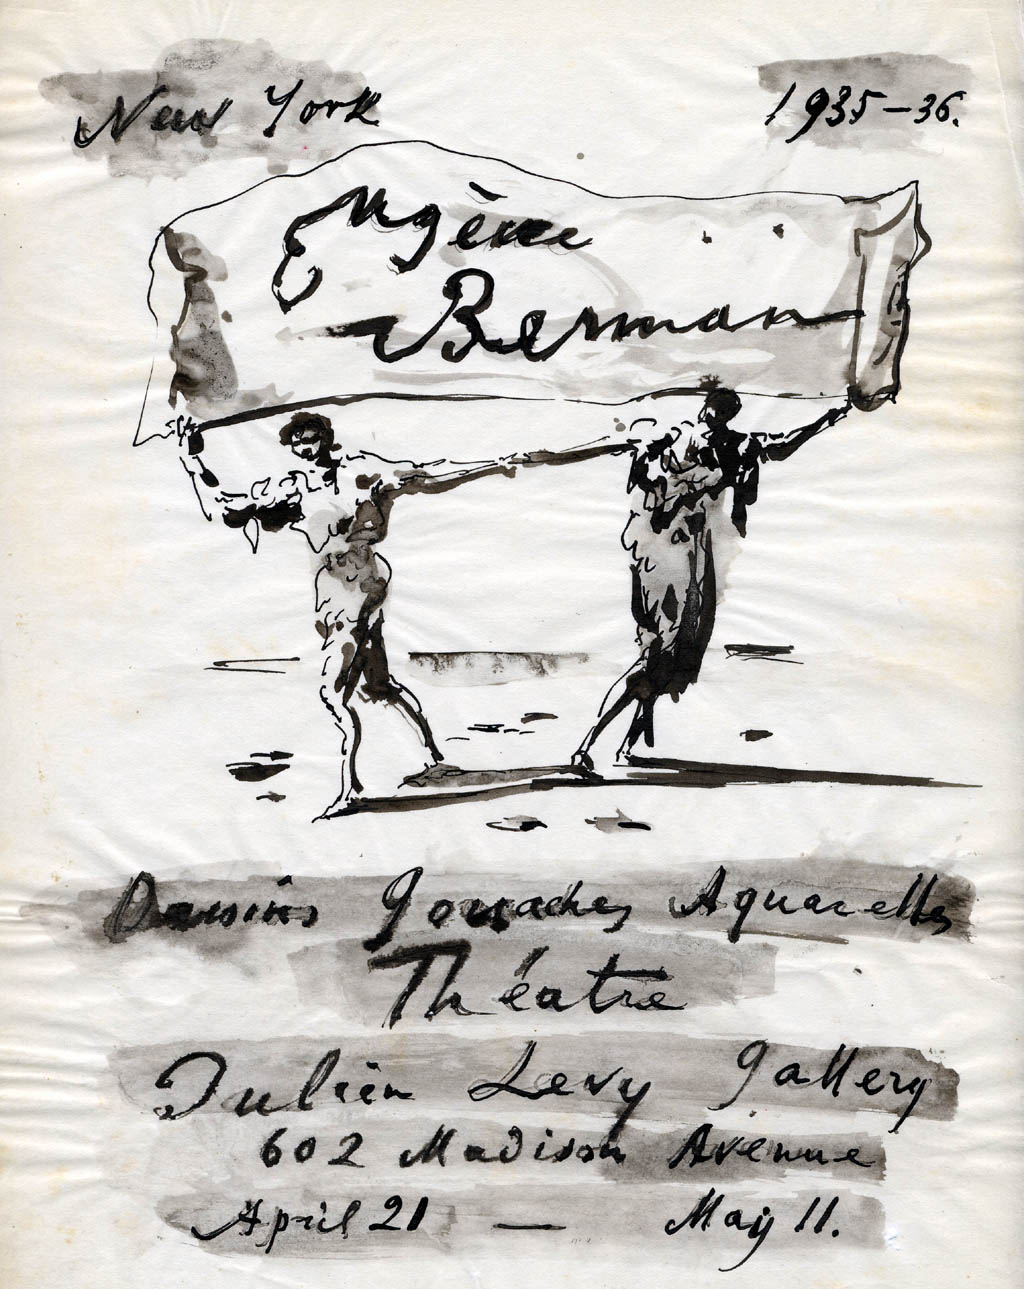 New York 1935-36.
Eugène
Berman
Dessins Gouaches Aquarelles
Théatre
Julien Levy Gallery
602 Madison Avenue
April 21 — May 11.